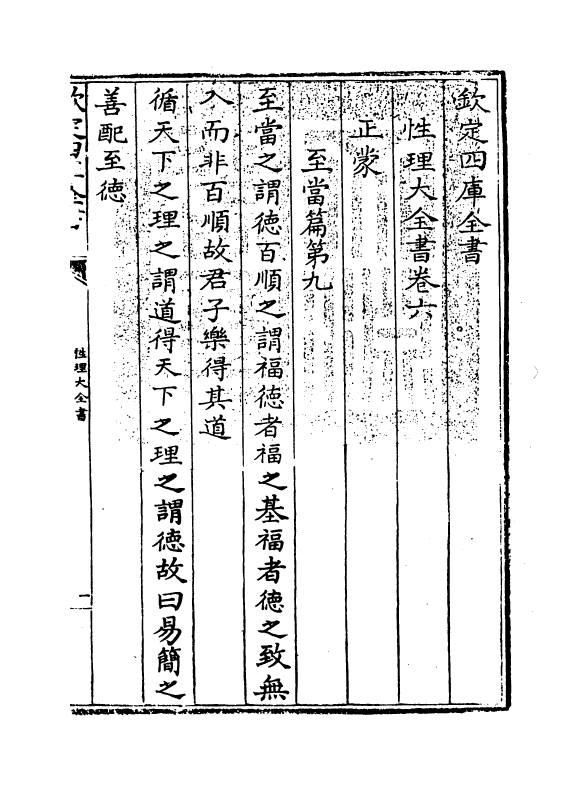 欽定四庫全書
性理大全書卷六
正蒙
至當篇第九
至當之謂德百順之謂福德者福之基福者德之致無
入而非百順故君子樂得其道
循天下之理之謂道得天下之理之謂德故曰易簡之
善配至德
性理大全書